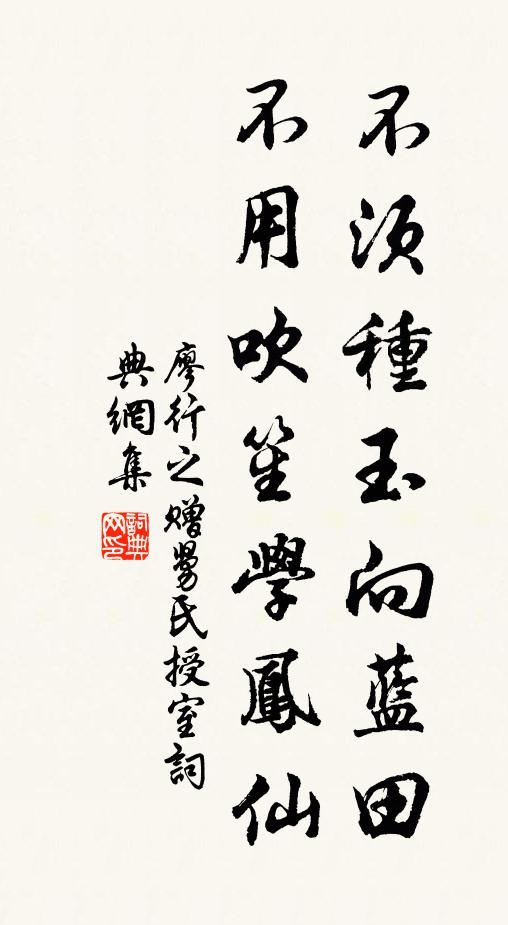 不須種玉向藍田
不用吹笙學鳳仙
廖行之贈勞氏授室詞
典網集
詞典网印